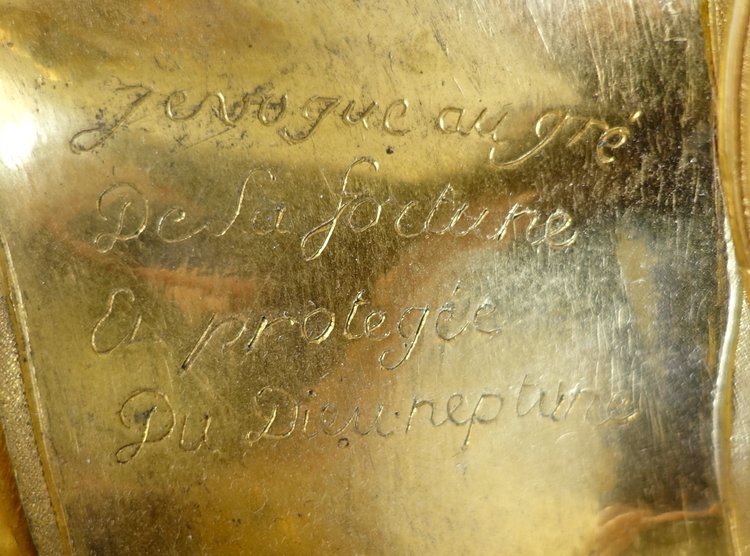 Je vogue au gré
De la fortune
Et protegée
Du Dieu neptune